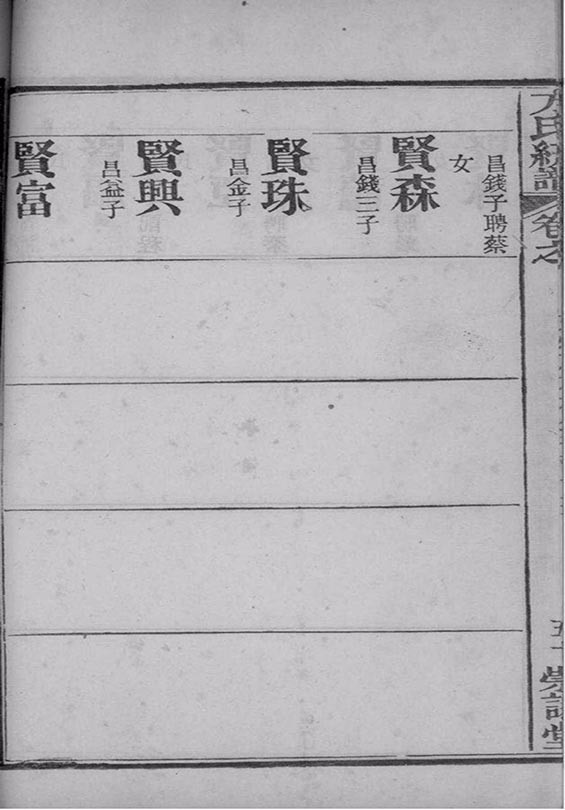 昌錢子聘蔡
女
賢森
昌錢三子
賢珠
昌金子
賢興
昌益子
賢富